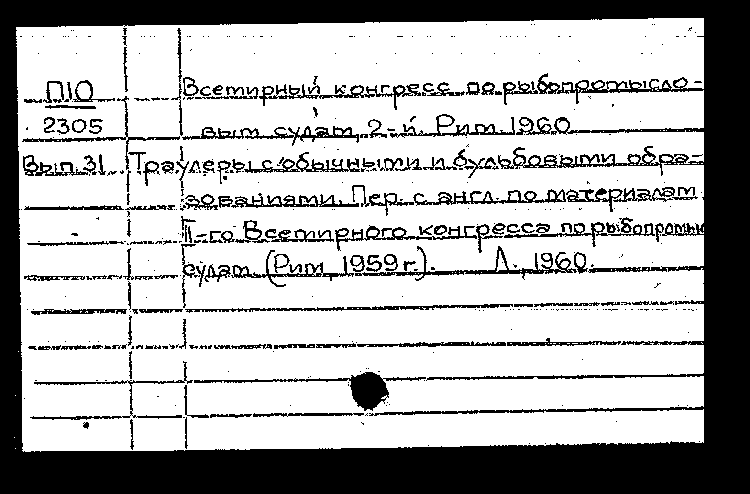 П10 Всемирный конгресс по рыбопромысло-
2305 вым судам, 2-й. Рим. 1960
Вып. 31 Траулеры с обычными и бульбовыми обра-
зованиями. Пер. с англ. по материалам
II-го Всемирного конгресса по рыбопромы
судам. (Рим, 1959 г.). Л., 1960.